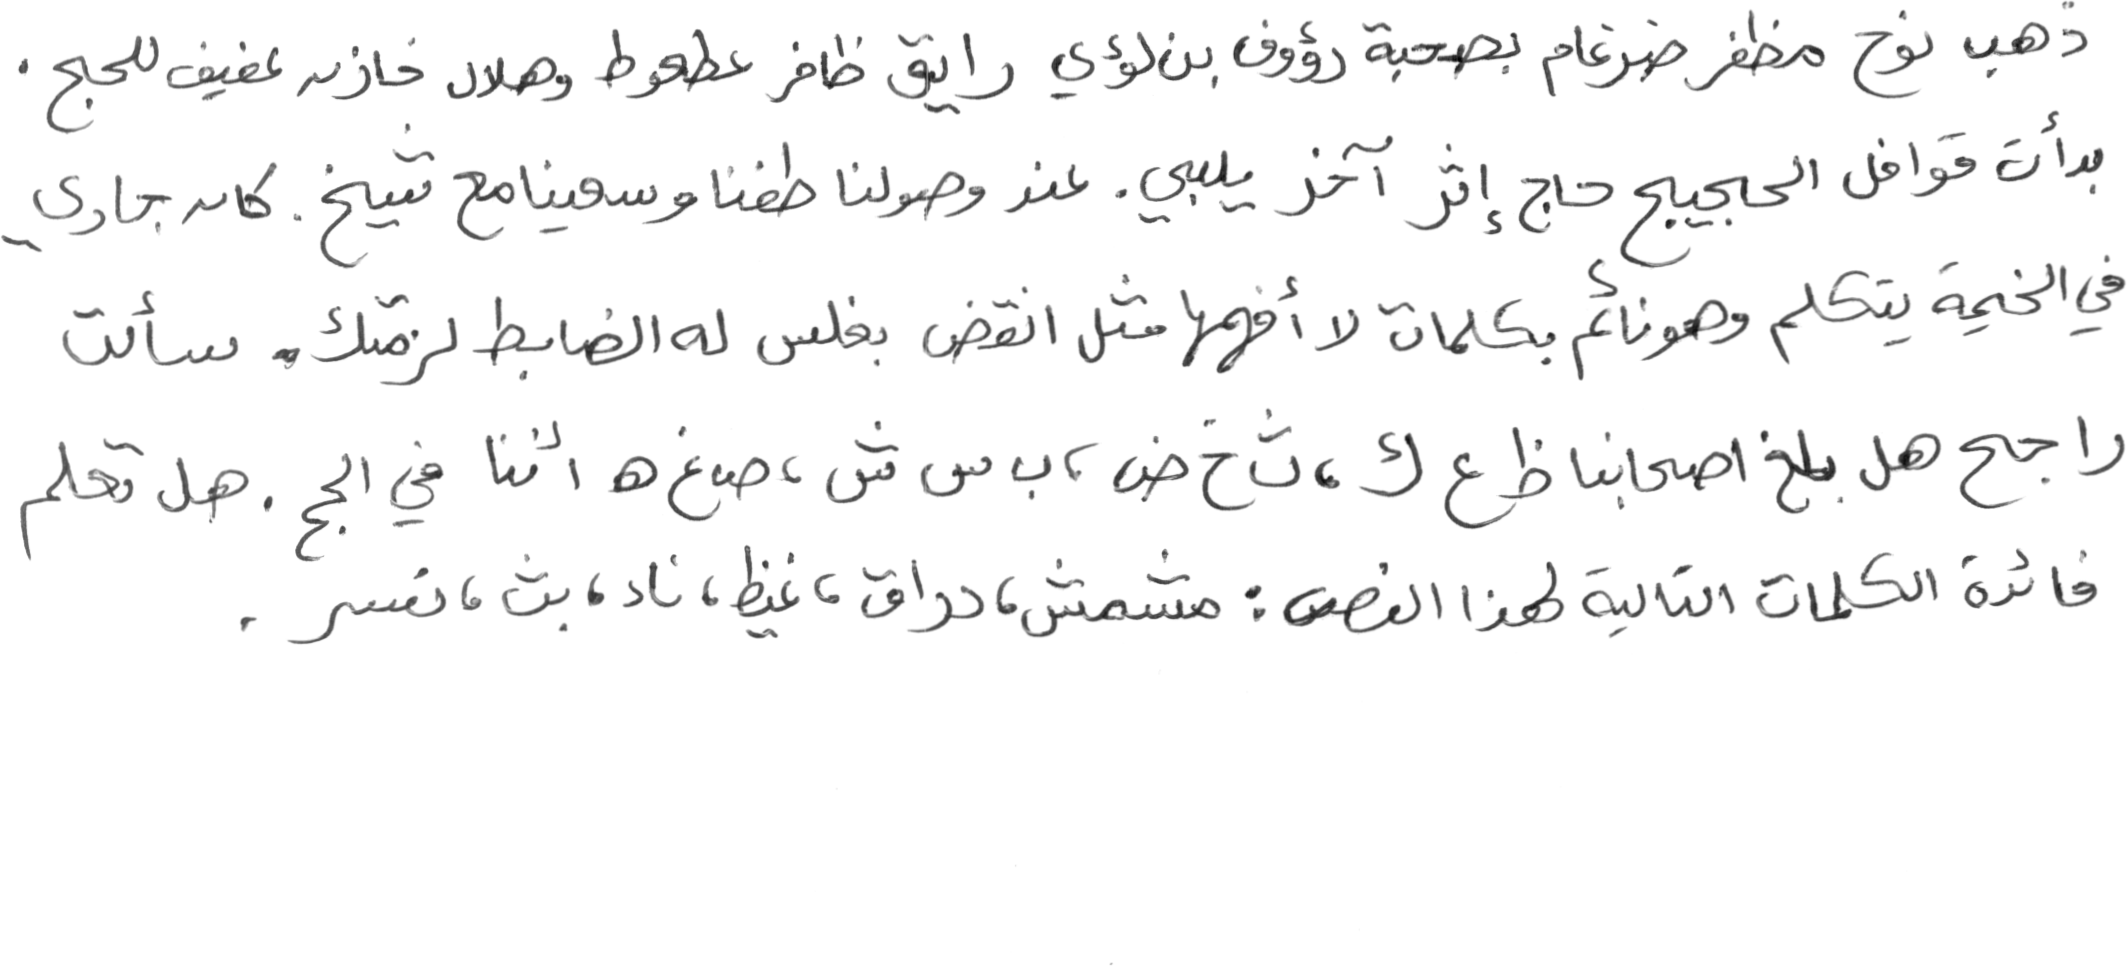 ذهب نوح مظفر ضرغام بصحبة رؤوف بن لؤي رايق ظافر عطعوط وهلال خازن عفيف للحج .
بدأت قوافل الحجيج حاج إثر آخر يلبي . عند وصولنا طفنا وسعينا مع شيخ . كان جاري
في الخيمة يتكلم وهو نائم بكلمات لا أفهمها مثل انقض بغلس له الضابط لزمتك . سألت
راجح هل بلغ اصحابنا ظ ع ك ، ث خ ض ، ب س ش ، ص غ ه ائننا في الحج . هل تعلم
فائدة الكلمات التالية لهذا النص : مشمش ، دراق ، غيظ ، ناد ، بث ، نفسر .